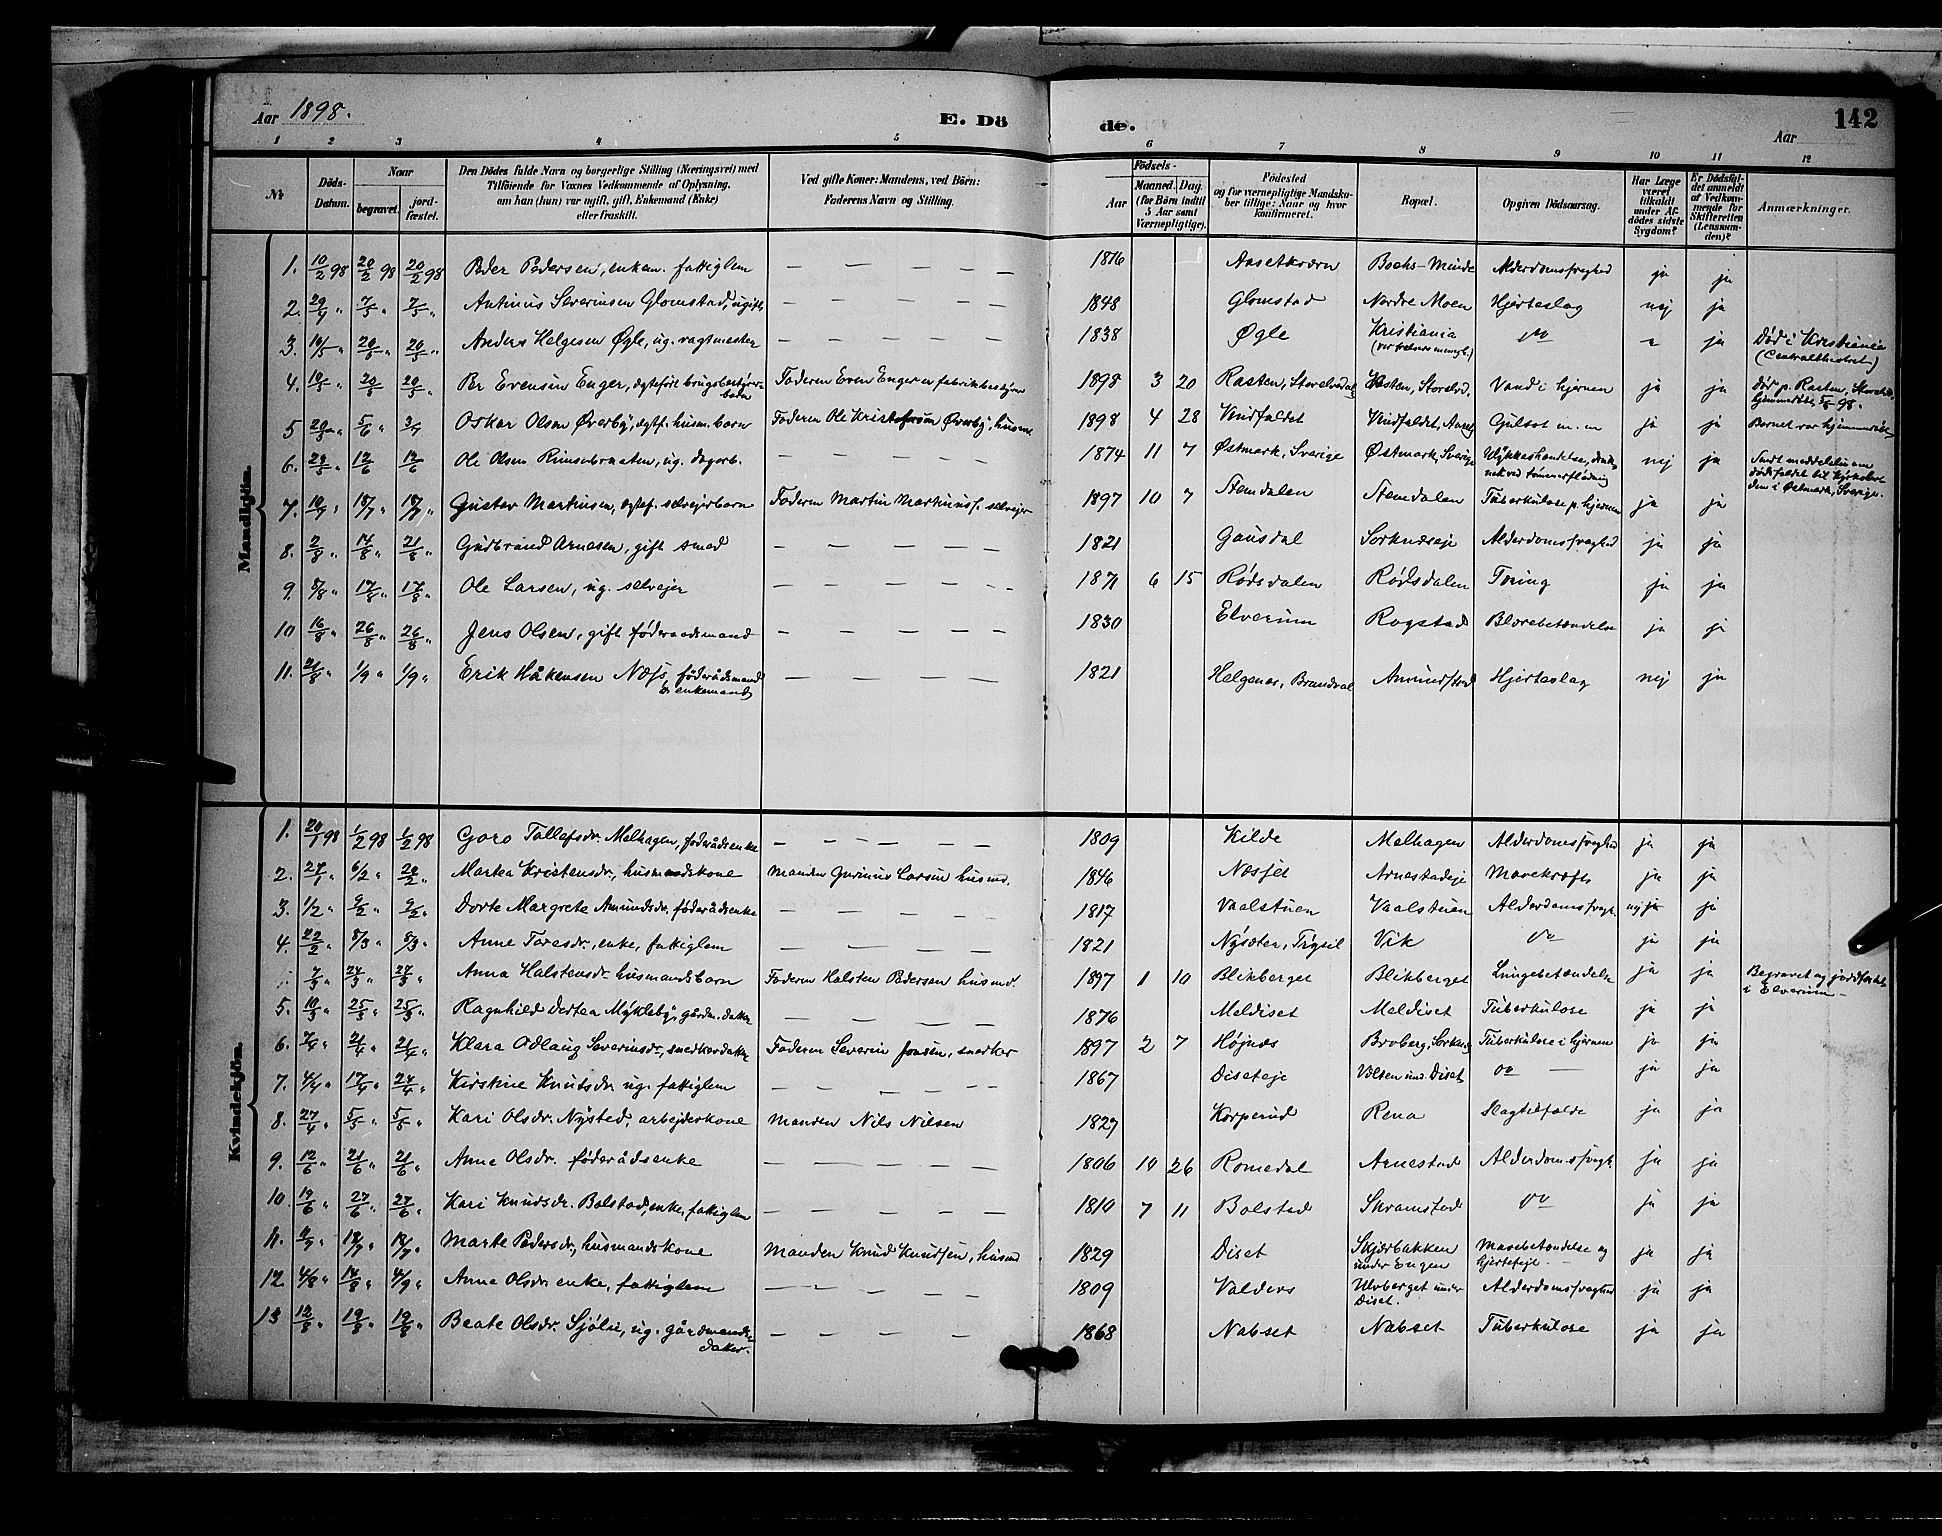 Aar 1898. E. Dö de. Aar 142
1 2 3 4 5 6 7 8 9 10 11 12
№ Döds-Datum. Naar begravet. jord-fæstet. Den Dödes fulde Navn og borgerlige Stilling (Næringsvei) med Tilföiende for Voxnes Vedkommende af Oplysning, om han (hun) var ugift, gift, Enkemand (Enke) eller fraskilt. Ved gifte Koner: Mandens, ved Börn: Faderens Navn og Stilling. Födsels- Aar Maaned. Dag. (for Börn indtil 5 Aar samt Værnepligtige). Födested og for værnepligtige Mandska-ber tillige: Naar og hvor konfirmeret. Bopæl. Opgiven Dödsaarsag. Har Læge været tilkaldt under Af-dödes sidste Sygdom? Er Dödsfal-det anmeldt af Vedkom-mende for Skifteretten (Lensman-den)? Anmærkninger.
Mandkjön.
1. 10/2 98 20/2 98 20/2 98 Peder Pedersen, enkem. fattiglem — — — — — 1816 Aasetkværn Bochs-Minde Alderdomssvaghed ja ja
2. 29/4 " 7/5 " 7/5 " Antinus Severinsen Glomstad, ugift — — — — — 1848 Glomstad Nordre Moen Hjerteslag nej ja
3. 10/5 " 20/5 " 20/5 " Anders Helgesen Øgle, ug. vagtmester — — — — — 1838 Øgle Kristiania do – ja Død i Kristiania
4. 10/5 " 20/5 " 20/5 " Per Evensen Enger, ægtefødt brugsbestyrer-barn Faderen Even Enger er fabrikbestyrer 1898 3 20 Rasten, Storelvedal Rasten, Storelvd. Vand i hjernen ja ja Dør p. Rasten, Storelvd.
5 20/5 " 5/6 " 3/7 Oskar Olsen Øverby, ægtf. husm. barn Faderen Ole Kristofersen Øverby, husmd. 1898 4 28 Vindfaldet Vindfaldet, Aasey Gulsot m. m ja ja Barnet var hjemmedøbt
6. 29/5 " 12/6 12/6 " Ole Olsen, ug. dagarb. — — — — — 1874 11 7 Østmark, Sverige Østmark, Sverige Ulykkeshændelse, druk-nek ved tømmerflødning nej ja Sendt meddelelse om dødsfaldet til i Østmark, Sverige.
7. 10/7 " 18/7 " 18/7 " Gustav Martinsen, ægtef. selvejerbarn Faderen Martin selvejer 1897 10 7 Stendalen Stemdalen Tuberkulose p. hjernen ja ja
8. 2/8 " 14/8 " 21/8 " Gudbrand Arnesen, gift smed — — — — — 1821 Gausdal Sorknæseje Alderdomssvaghed ja ja
9. 8/8 " 17/8 " 17/8 " Ole Larsen, ug. selvejer — — — — — 1871 6 15 Rødsdalen Rødsdalen Tæring ja ja
10 16/8 " 26/8 " 26/8 " Jens Olsen, gift føderaadsmand — — — — — 1830 Elverum Rogstad Blærebetændelse ja ja
11. 21/8 " 1/9 " 1/9 " Erik Håkensen Næss, føderådsmand & enkemand — — — — — 1821 Helgenes, Brandval Amundstad Hjerteslag nej ja
Kvindekjön.
1. 20/1 98 1/2 98 1/2 98 Goro Tollefsdr. Melhagen, føderådsenke — — — — — 1809 Kilde Melhagen Alderdomssvaghed ja ja
2. 27/1 " 6/2 " 20/2 " Martea Kristensdr., husmandskone Manden Gurinius Larsen husmd. 1846 Næsset Arnestadeje Mavekræft ja ja
3. 1/2 " 9/2 " 9/2 " Dorte Margrete Amundsdr. føderådsenke — — — — — 1817 Vaalstuen Vaalstuen Alderdomssvagh. nej ja
4. 22/2 " 8/3 " 8/3 " Anne Toresdr., enke, fattiglem — — — — — 1821 Nysæter, Trysil Vik do ja ja
7/3 " 24/3 " 27/3 " Anna Halstensdr. husmandsbarn Faderen Halsten Pedersen husmd. 1897 1 10 Blikberget Blikberget Lungebetændelse ja ja Begravet og jordfæstet i Elverum—
5. 10/3 " 25/3 " 25/3 " Ragnhild Dortea Mykleby, gårdm. datter — — — — 1876 Meldiset Meldiset Tuberkulose ja ja
6. 7/4 " 21/4 " 21/4 " Klara Odlaug Severinsdr., snedkerdatter Faderen Severin Jensen, snedker 1897 2 7 Højnæs Broberg, Sorknes Tuberkulose i hjernen ja ja
7. 4/4 " 17/4 " 24/4 " Kirstine Knutsdr. ug. fattiglem — — — — 1867 Diseteje Volten und. Diset do — ja ja
8. 27/4 " 5/5 " 5/5 " Kari Olsdr. Nysted, arbejderkone Manden Nils Nilsen 1827 Korperud Rena Slagtilfælde ja ja
9. 12/6 " 21/6 " 21/6 " Anne Olsdr. føderådsenke — — — — — 1806 10 26 Romedal Arnestad Alderdomssvagh. ja ja
10. 19/6 " 27/6 " 27/6 " Kari Knudsdr. Bolstad, enke, fattiglem — — — — — 1810 7 11 Bolstad Skramstad do ja ja
11. 9/7 " 18/7 " 18/7 " Marte Pedersdr., husmandskone Manden Knud Knudsen, husmd 1829 Diset Skjærbakken under Engen Mavebetændelse og hjertefejl. ja ja
12. 4/8 " 14/8 " 4/9 " Anne Olsdr. enke, fattiglem — — — — — 1809 Valders Ulvberget under Diset. Alderdomssvaghed ja ja
13 12/8 " 19/8 " 19/8 " Beate Olsdr. Sjølie, ug. gårdmands-datter. — — — — — 1868 Nabset Nabset Tuberkulose ja ja